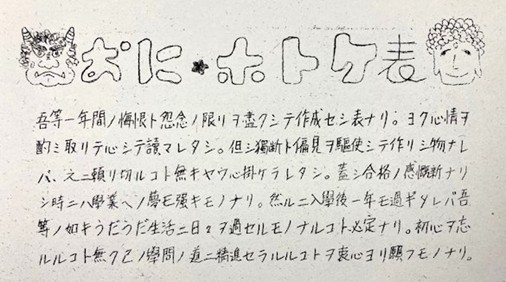 おに★ホトケ表
吾等一年間ノ悔恨ト怨念ノ限リヲ盡クシテ作成セシ表ナリ。ヨク心情ヲ
酌ミ取リテ心シテ讀マレタシ。但シ獨斷ト偏見ヲ驅使シテ作リシ物ナレ
バ、之ニ頼リ切ルコト無キヤウ心掛ケラレタシ。蓋シ合格ノ感慨新ナリ
シ時ニハ學業ヘノ夢モ强キモノナリ。然ルニ入學後一年モ過ギタレバ吾
等ノ如キうだうだ生活ニ日々ヲ過セルモノナルコト必定ナリ。初心ヲ忘
ルルコト無ク己ノ學問ノ道ニ精進セラルルコトヲ衷心ヨリ願フモノナリ。